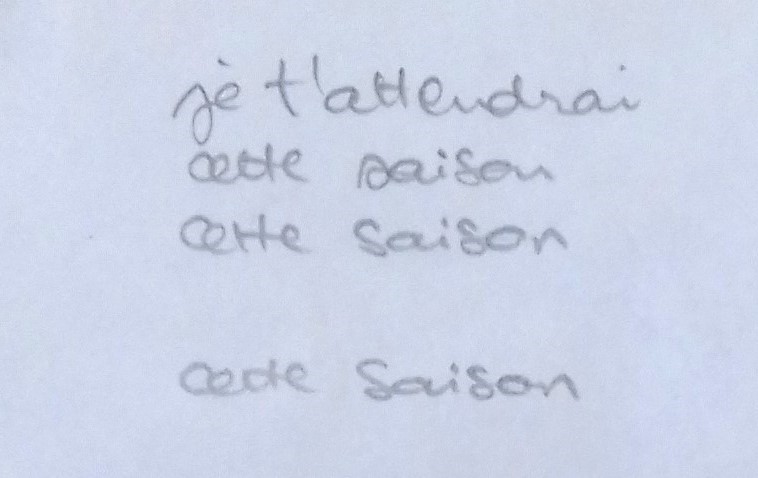 je t'attendrai
cette saison
cette saison
cette saison